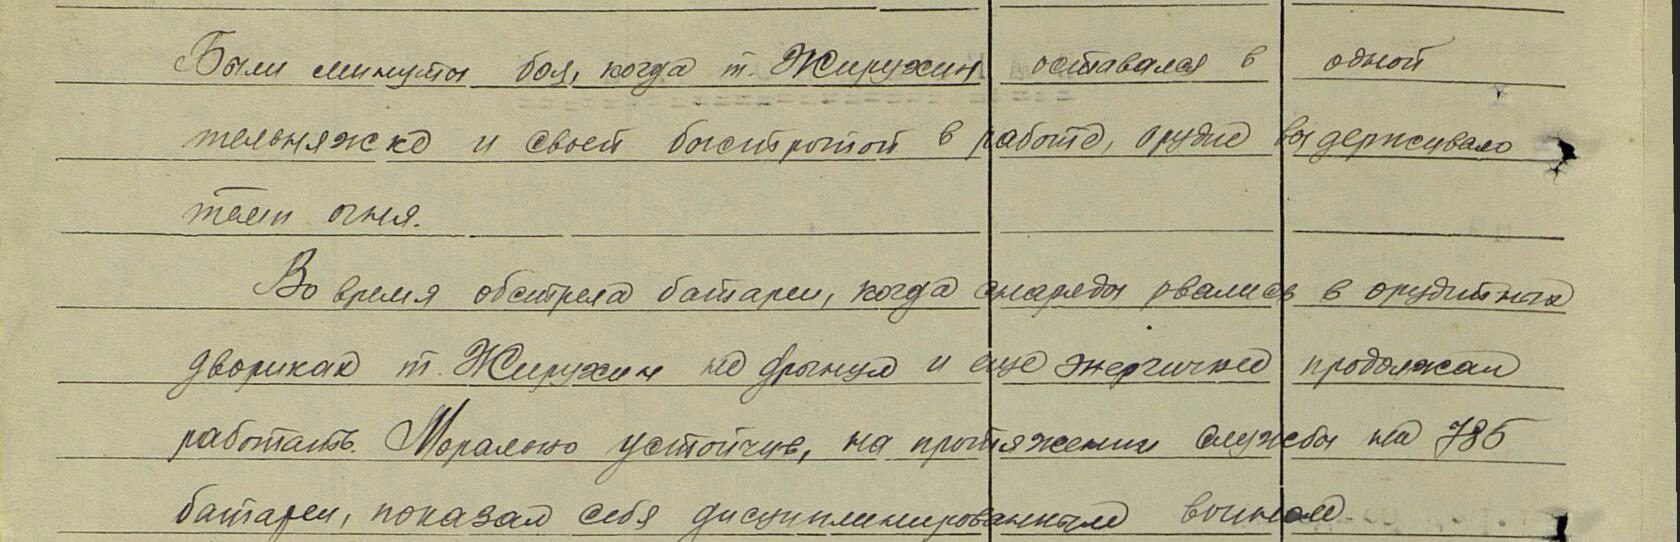 Были минуты боя, когда т. Жирухин оставался в одной
тельняжке и своей быстротой в работе, орудие выдерживало
темп огня.
Во время обстрела батареи, когда снаряды рвались в орудийных
двориках т. Жирухин не дрынул и еще энергичнее продолжал
работать. Морально устойчив, на протяжении службы на 785
батареи, показал себя дисциплинированным воином